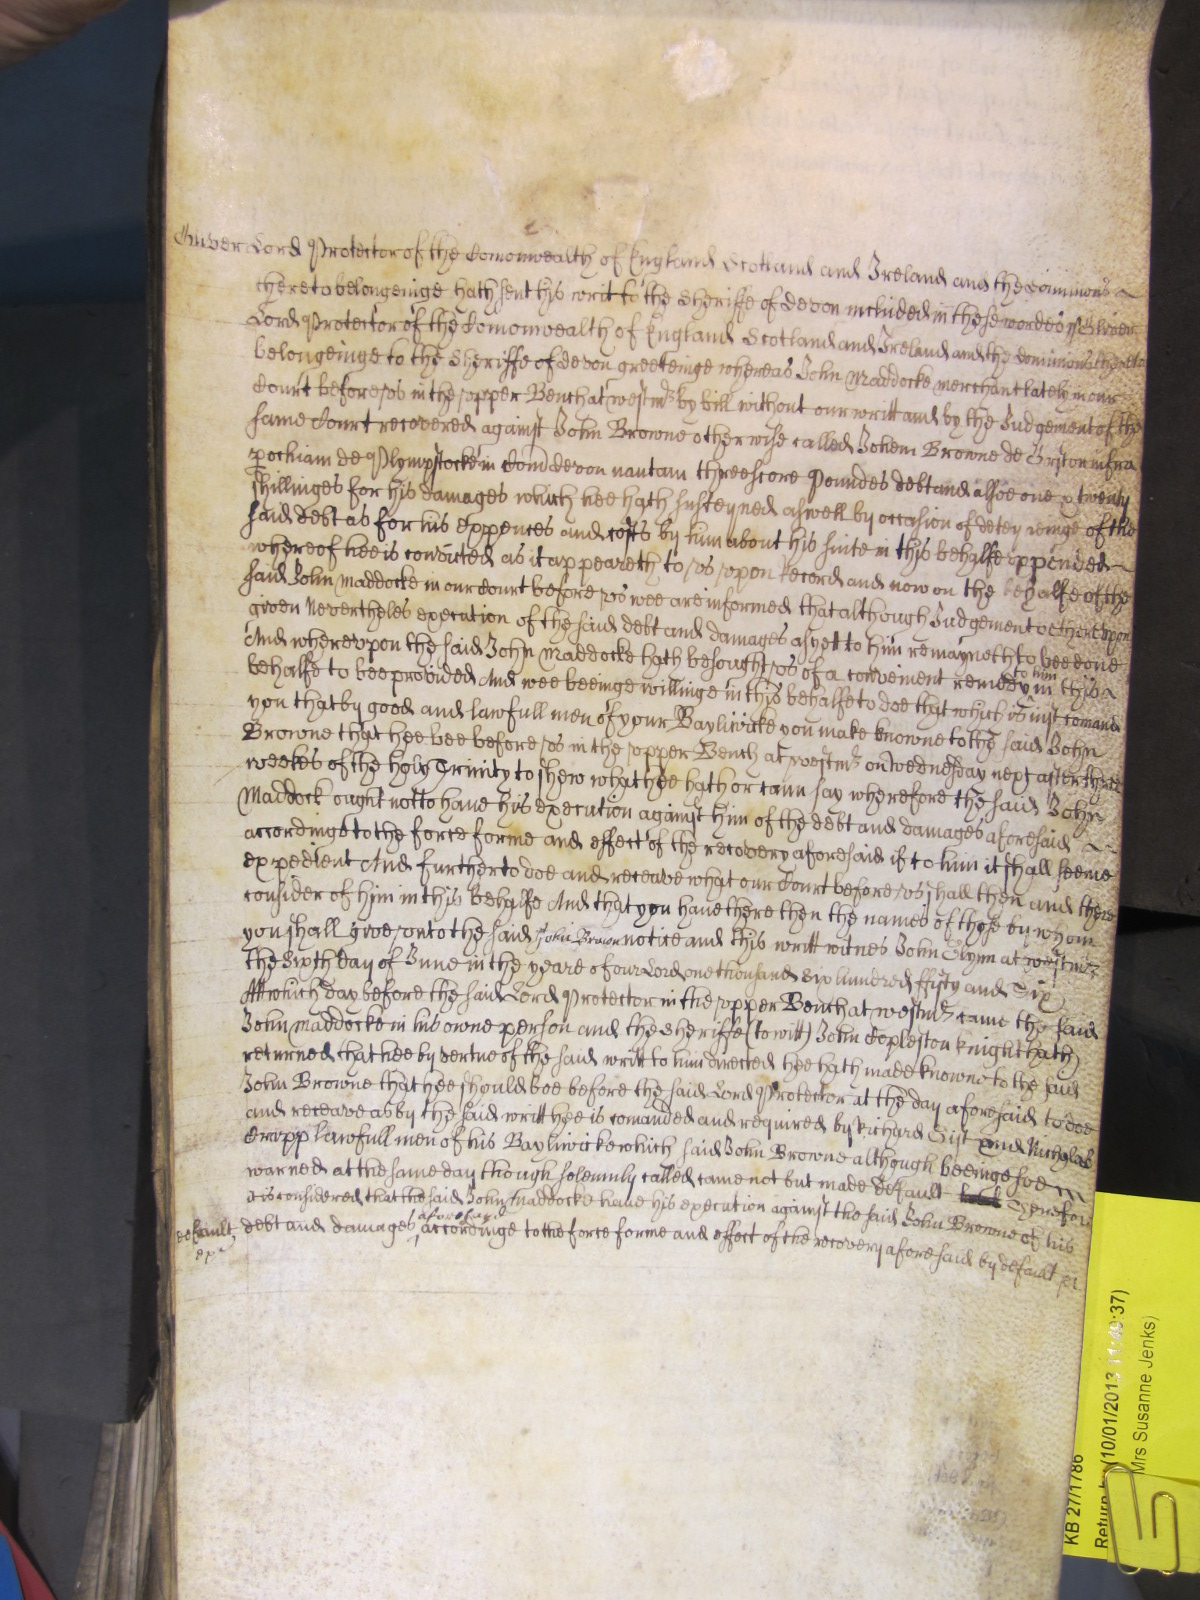 Oliver Lord Protector of the Comonwealth of England Scotland and Ireland and the dominions
thereto belongeinge hath sent his writ to the Sheriffe of Devon included in these words ss Oliver
Lord Protector of the Comonwealth of England Scotland and Ireland and the dominions thereto
belongeinge to the Sheriffe of Devon greeteinge whereas John Maddocke merchant lately in our
Court before us in the upper Bench at Westmr by bill without our writt and by the Judgement of the
same Court recovered against John Browne otherwise called Johem Browne de infra
pochiam de Plympstocke in Com Devon nautam threescore Poundes debt and alsoe one & twenty
shillinges for his damages which hee hath susteyned aswell by occasion of deteyneinge of the
said debt as for his expences and costs by him about his suite in this behalfe expended
whereof hee is convicted as it appeareth to us upon record and now on the behalfe of the
said John Maddocke in our Court before us wee are informed that although Judgement be thereupon
given Nevertheles execution of the said debt and damages as yet to him remayneth to bee done
And whereupon the said John Maddocke hath besought us of a convenient remedy to him in this
behalfe to bee provided And wee beeinge willinge in this behalfe to doe that which is iust comand
you that by good and lawfull men of your Bayliwicke you make knowne to the said John
Browne that hee bee before us in the upper Bench at Westmr on Wednesday next after three
weekes of the holy Trinity to shew what hee hath or cann say wherefore the said John
Maddock ought not to have his execution against him of the debt and damages aforesaid
accordinge to the force forme and effect of the recovery aforesaid if to him it shall seeme
expedient And further to doe and receave what our Court before us shall then and there
consider of him in this behalfe And that you have there then the names of those by whom
you shall give unto the said John Brown notice and this writt witnes John Glynn at Westmr
the Sixth day of June in the yeare of our Lord one thousand six hundred fifty and Six
Att which day before the said Lord Protector in the upper Bench at Westmr came the said
John Maddocke in his owne person and the Sheriffe (to witt) John Copleston knight hath
returned that hee by vertue of the said writt to him directed hee hath made knowne to the said
John Browne that hee should bee before the said Lord Protector at the day aforesaid to doe
and receave as by the said writt hee is comanded and required by Richard and Nicholas
Cropp lawfull men of his Bayliwicke which said John Browne although beeinge soe
warned at the same day though solemnly called came not but made default Therefore
it is considered that the said John Maddocke have his execution against the said John Browne of his
debt and damages aforesaid accordinge to the force forme and effect of the recovery aforesaid by default
default
ex
KB 27/1786
Return by (10/01/2013 37)
Mrs Susanne Jenks)